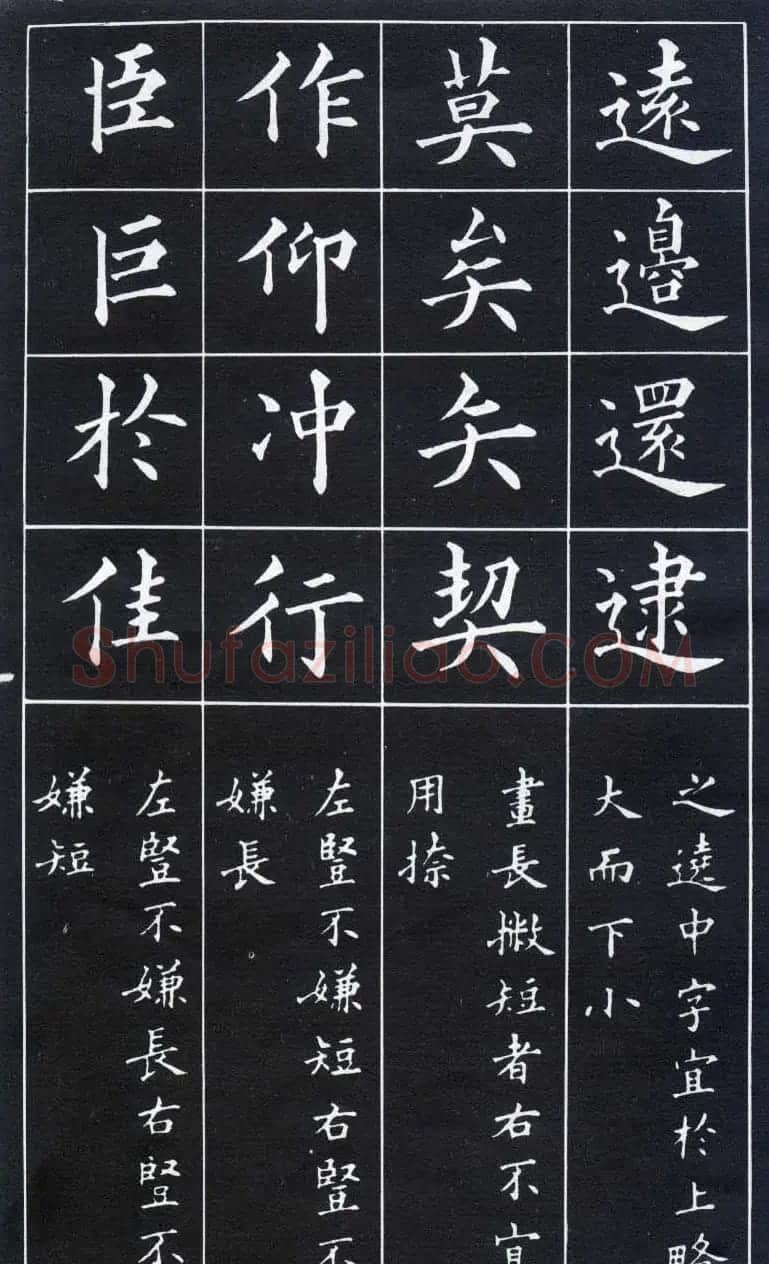 遠邊還逮
之遶中字宜於上略
大而下小
莫矣矢契
畫長撇短者右不宜
用捺
作仰冲行
左豎不嫌短右豎不
嫌長
臣巨於佳
左豎不嫌長右豎不
嫌短
Shufaziliao.COM